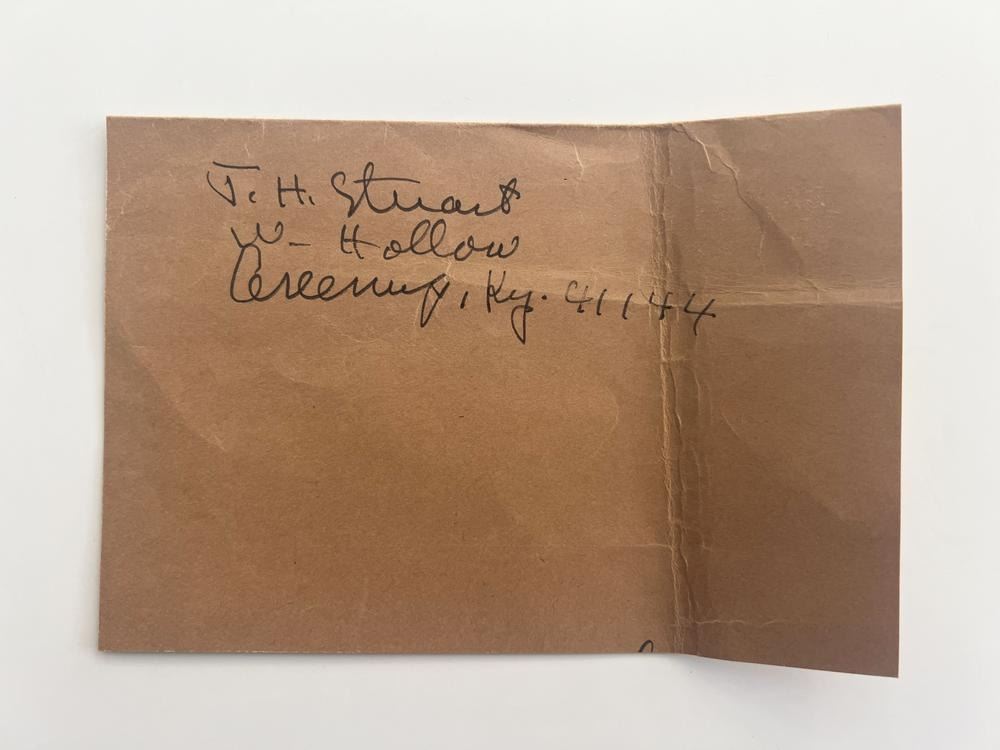 J. H. Stuart
W-Hollow
Greenup, Ky. 41144